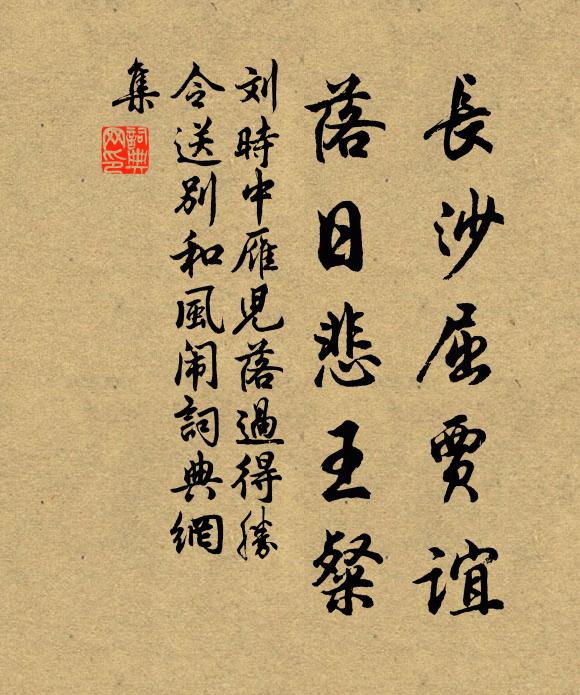 長沙屈賈誼
落日悲王粲
刘時中雁児落過得勝
令送别和風闹詞典網
集
詞典
网印